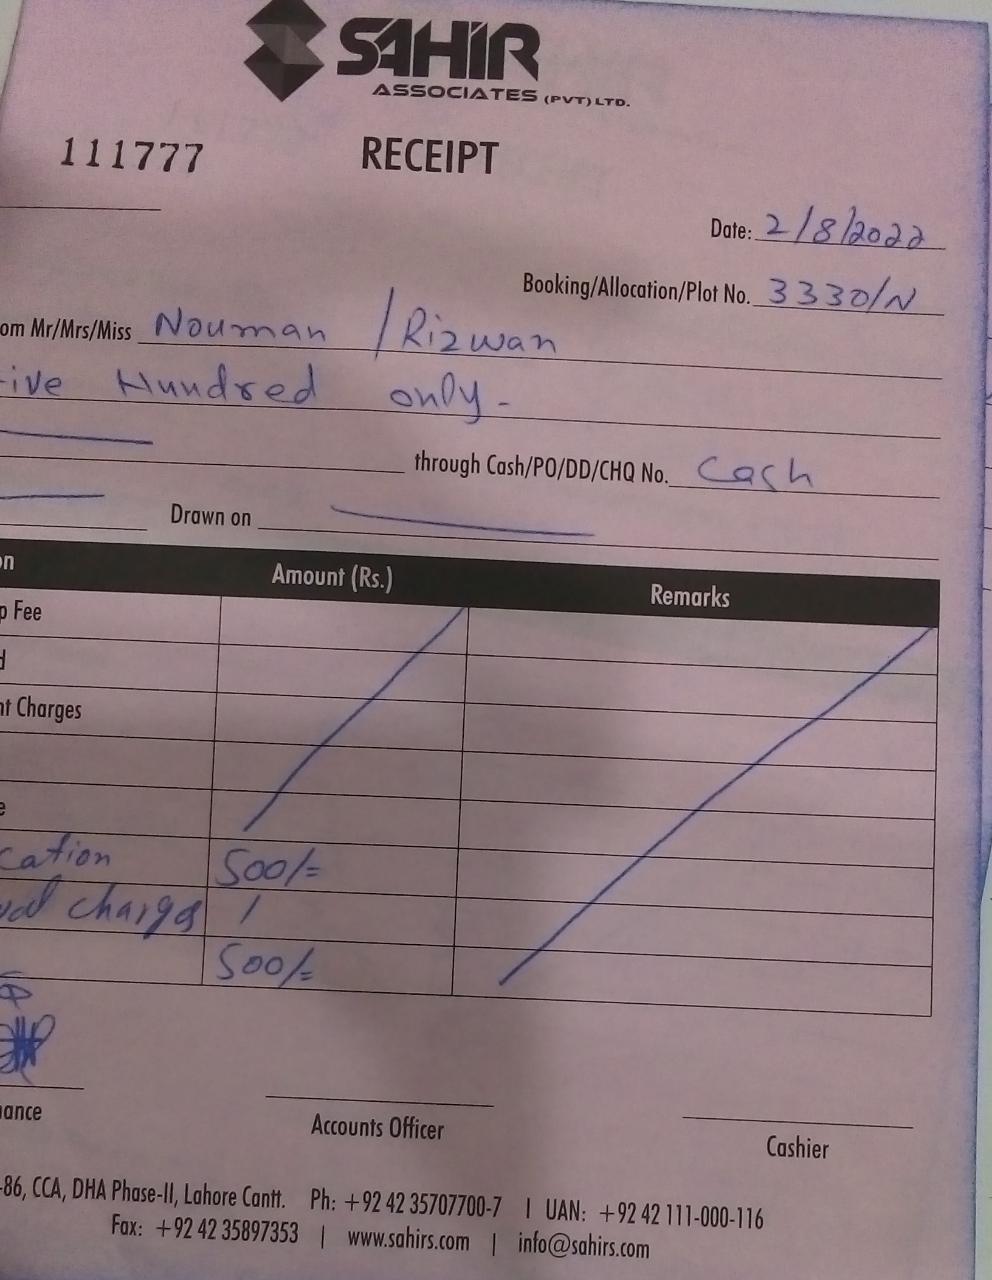 SAHIR
ASSOCIATES (PVT) LTD.
111777 RECEIPT
Date: 2/8/2022
Booking/Allocation/Plot No. 3330/N
om Mr/Mrs/Miss Nouman / Rizwan
ive Hundred only -
through Cash/PO/DD/CHQ No. Cash
Drawn on
on Amount (Rs.) Remarks
p Fee
d
nt Charges
e
cation 500/=
val charges /
500/=
nance Accounts Officer Cashier
-86, CCA, DHA Phase-II, Lahore Cantt. Ph: +92 42 35707700-7 | UAN: +92 42 111-000-116
Fax: +92 42 35897353 | www.sahirs.com | info@sahirs.com